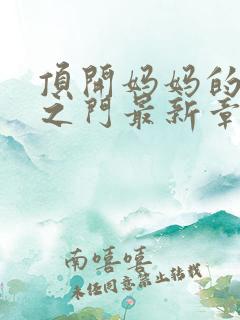 頂開妈妈的
之门最新章
南嘻嘻
未经同意禁止转载